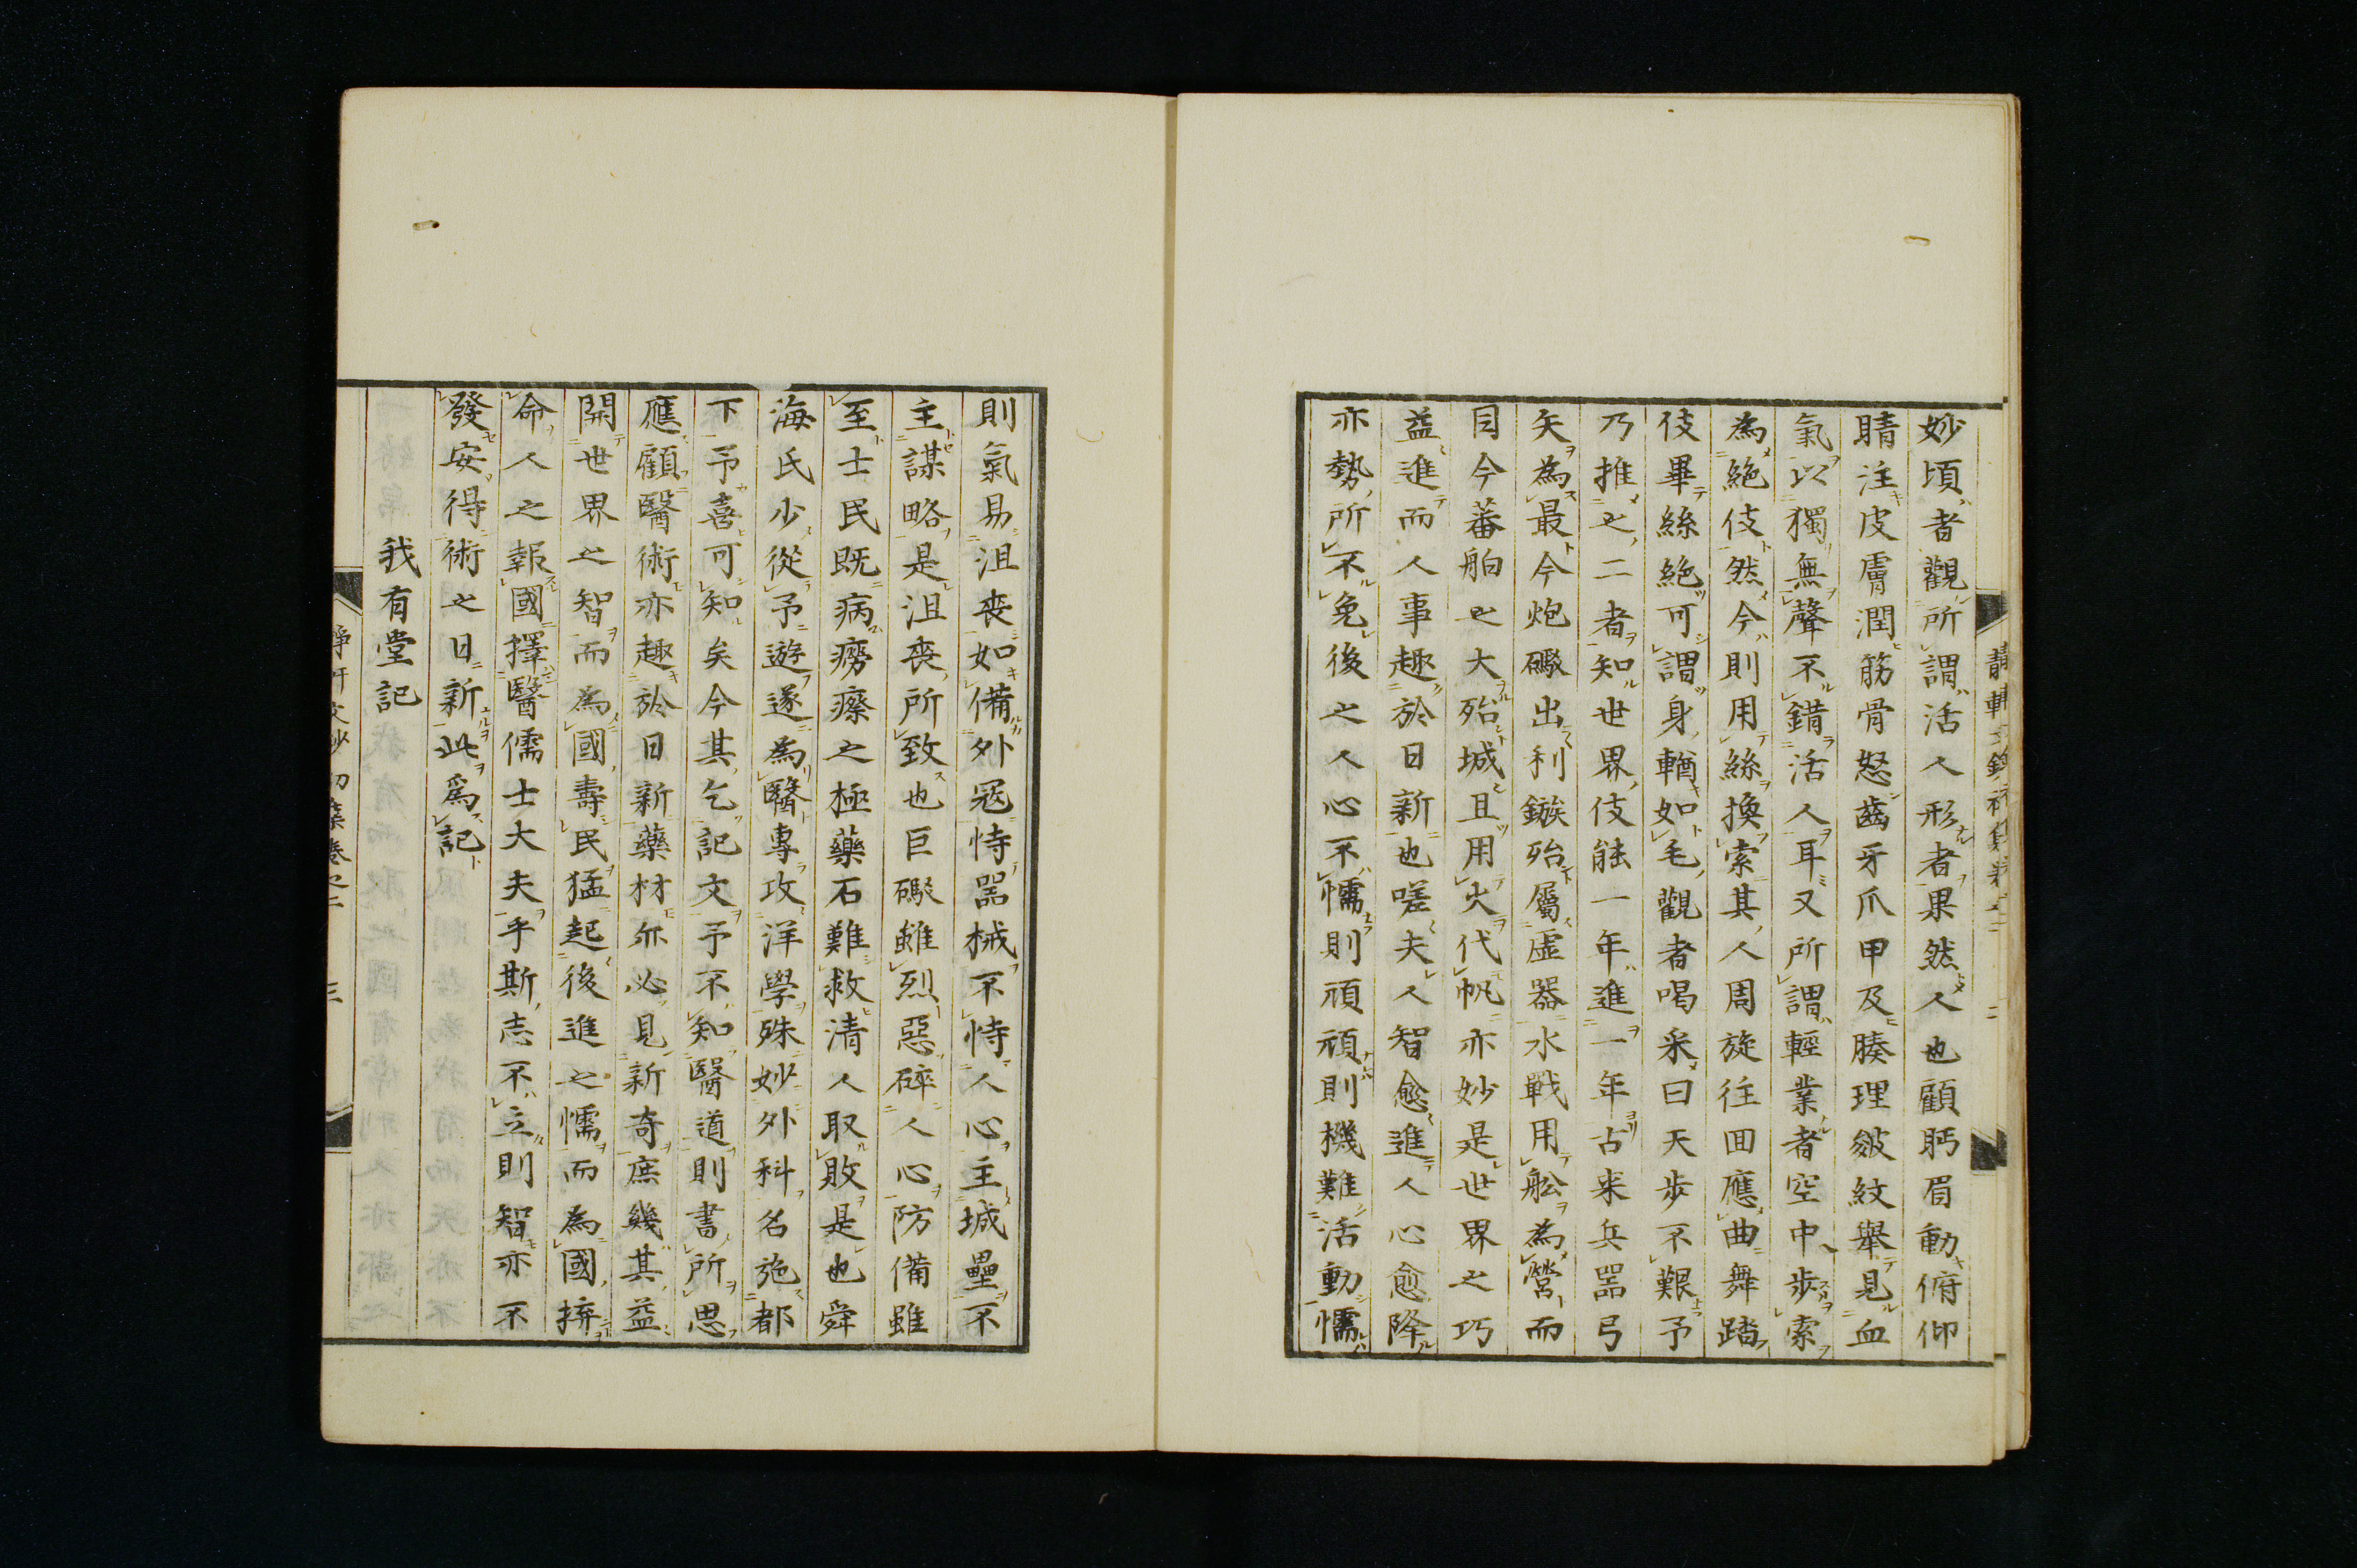 妙頃者觀所謂活人形者果然人也顧眄眉動俯仰
睛注皮膚潤筋骨怒齒牙爪甲及腠理皴紋舉見血
氣以獨無聲不錯活人耳又所謂輕業者空中步索
為絶伎然今則用絲換索其人周旋往回應曲舞踏
伎畢絲絶可謂身輶如毛觀者喝采曰天步不艱予
乃推之二者知世界伎能一年進一年古来兵器弓
矢為最今炮礮出利鏃殆屬虚器水戰用舩為營而
目今蕃舶之大殆城且用火代帆亦妙是世界之巧
益進而人事趣於日新也嗟夫人智愈進人心愈降
亦勢所不免後之人心不懦則頑頑則機難活動懦
則氣易沮喪如備外冦恃器械不恃人心主城壘不
主謀略是沮喪所致也巨礮雖烈惡碎人心防備雖
至士民既病癆瘵之極藥石難救清人取敗是也舜
海氏少從予遊遂為醫專攻洋學殊妙外科名施都
下予喜可知矣今其乞記文予不知醫道則書所思
應顧醫術亦趣於日新藥材亦必見新奇庶幾其益
開世界之智而為國壽民猛起後進之懦而為國擠
命人之報國擇醫儒士大夫乎斯志不立則智亦不
發安得術之日新此爲記
我有堂記